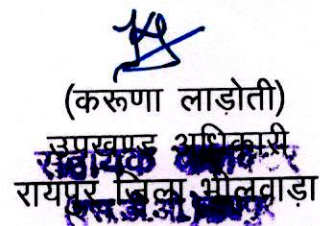 (करूणा लाडोती)
उपखण्ड अधिकारी
रायपुर जिला भीलवाड़ा